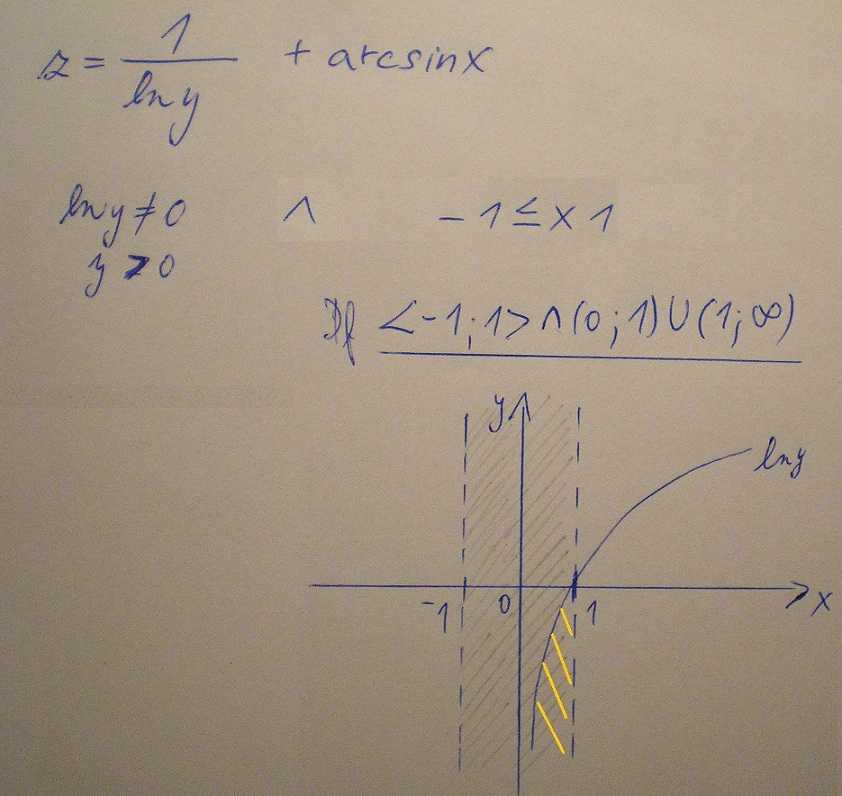 z = 1/ln y + arcsin x
ln y ≠ 0 ∧ -1 ≤ x 1
y > 0
Df <-1;1> ∧ (0;1) ∪ (1;∞)
y
ln y
-1 0 1 x